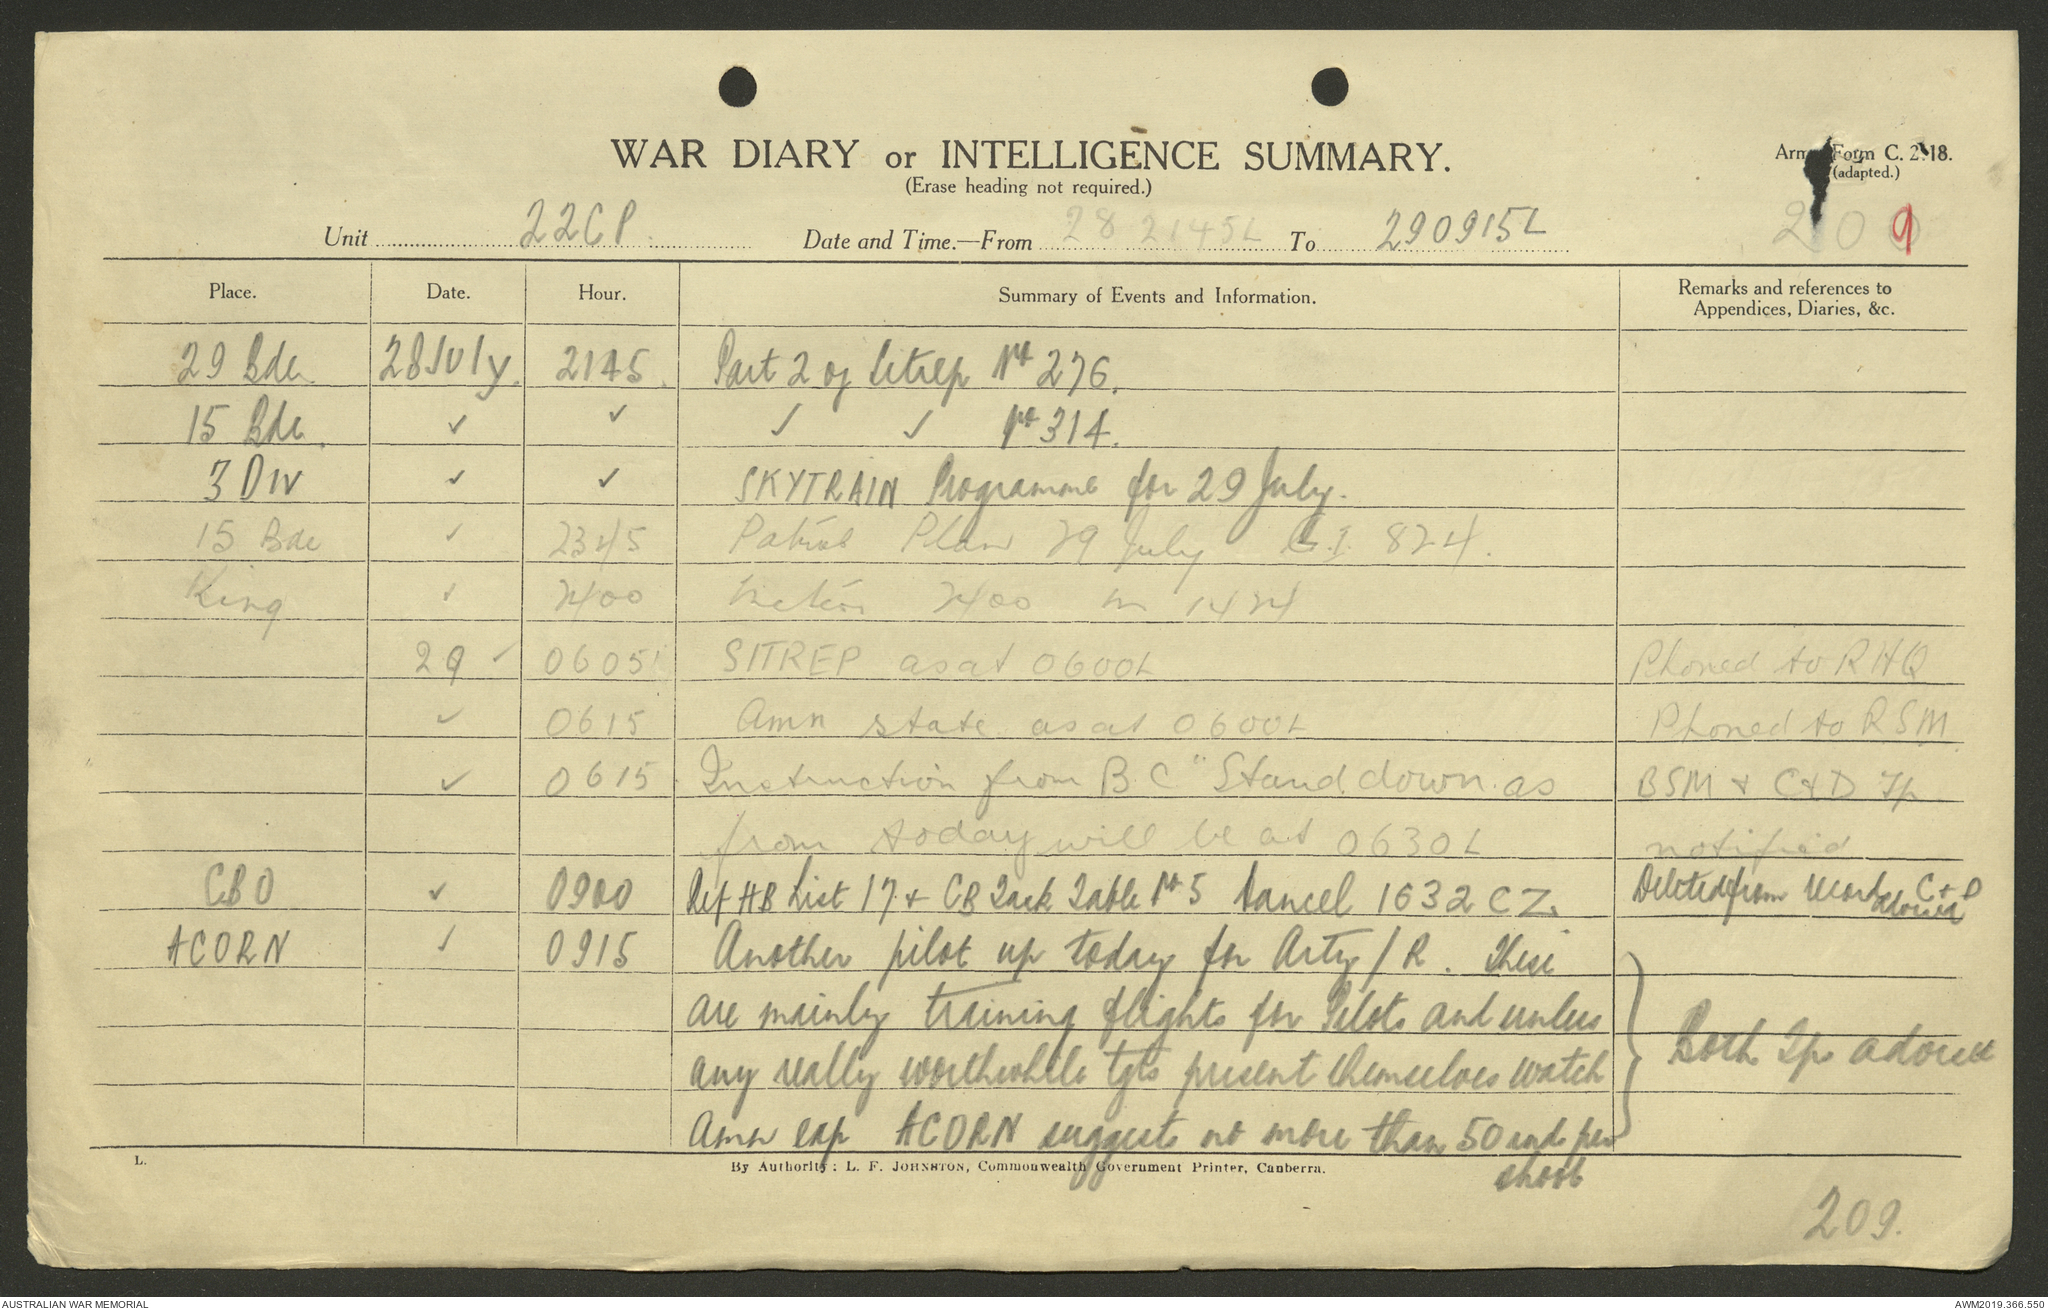 WAR DIARY or INTELLIGENCE SUMMARY.
(Erase heading not required.)
Army Form C. 2118.
(adapted.)
209
Unit 22CP. Date and Time.—From 28 2145L To 290915L
Place. Date. Hour. Summary of Events and Information. Remarks and references to Appendices, Diaries, &c.
29 Bde. 28 July. 2145. Part 2 of Sitrep No 276.
15 Bde. ✓ ✓ ✓ ✓ No 314.
3 DIV ✓ ✓ SKYTRAIN Programme for 29 July.
15 Bde ✓ 2345 Patrol Plan 29 July 824.
King ✓ 2400 2400 1424
29 ✓ 0605 SITREP as at 0600L Phoned to RHQ
✓ 0615 Amn state as at 0600L Phoned to RSM
✓ 0615 Instruction from B.C "Stand down as BSM + C+D Tp
from today will be at 0630L notified
CBO ✓ 0900 Ref HB List 17 + CB Task Table No 5 Cancel 1632 CZ. Deleted from record C+D advised
ACORN ✓ 0915 Another pilot up today for Arty/R. These
are mainly training flights for Pilots and unless
any really worthwhile tgts present themselves watch Both Tps advised
Amn exp ACORN suggests no more than 50 rnds per
shoot
L.
By Authority: L. F. JOHNSTON, Commonwealth Government Printer, Canberra.
209.
AUSTRALIAN WAR MEMORIAL
AWM2019.366.550